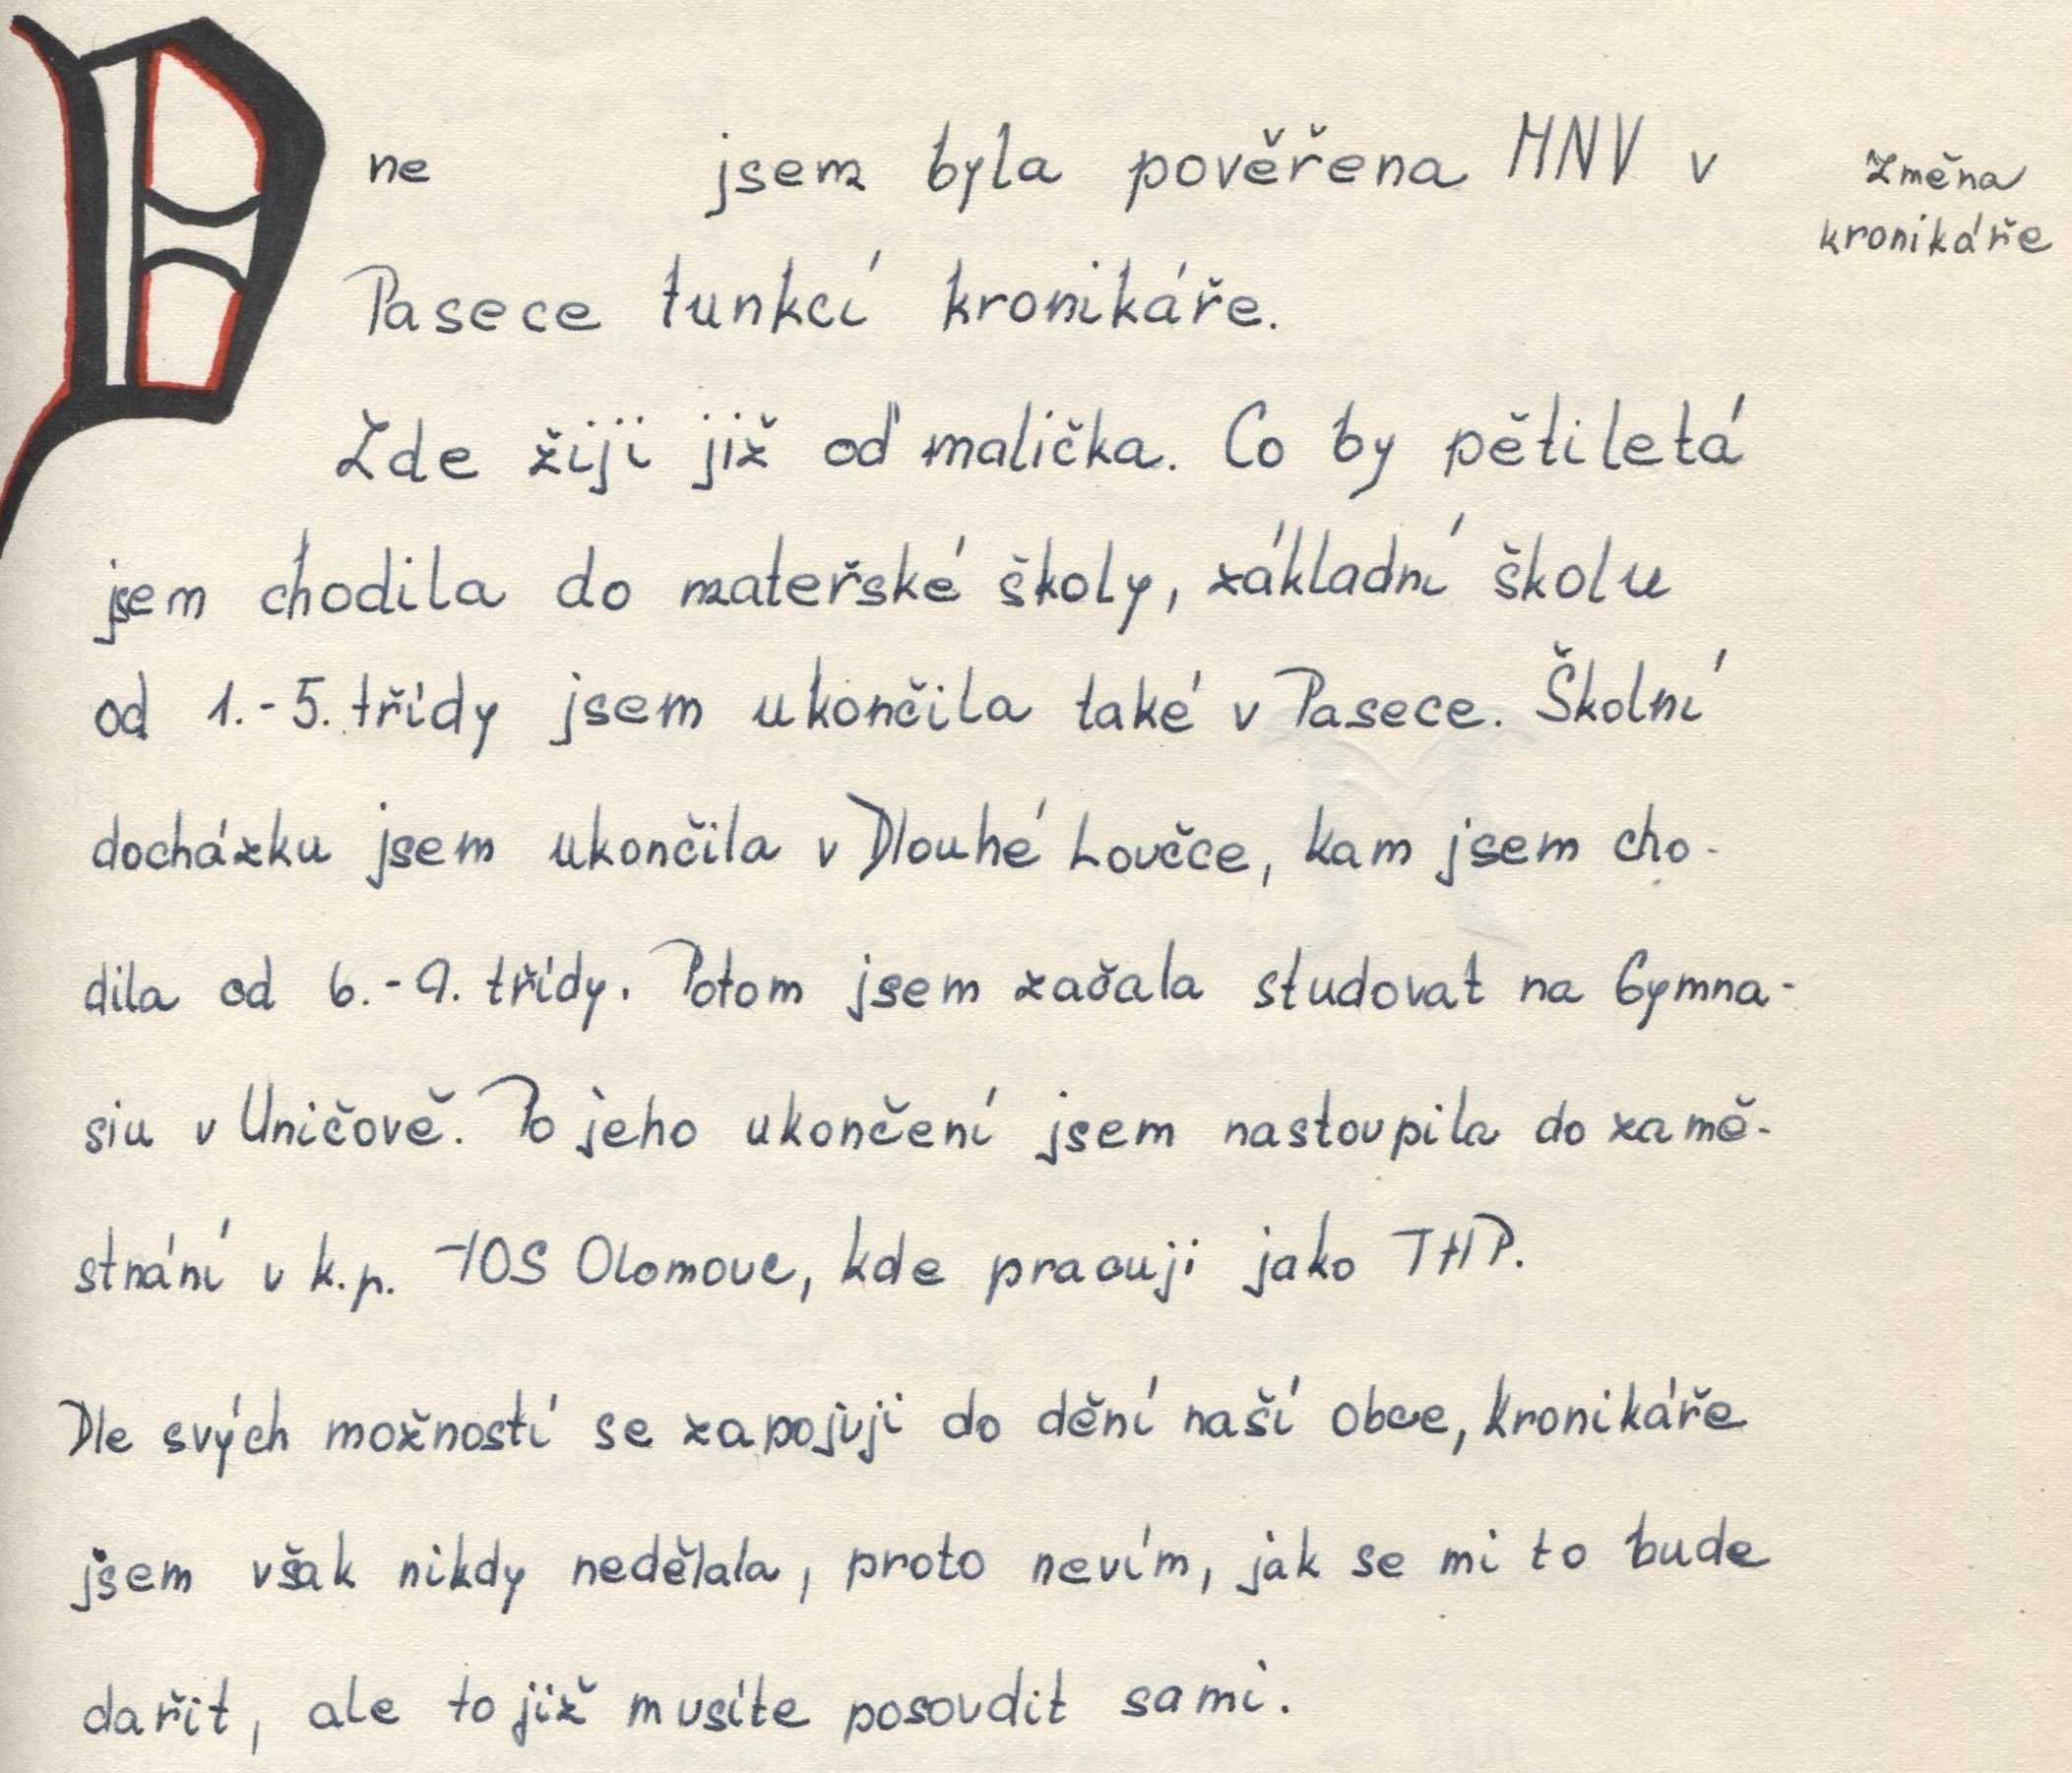 Dne jsem byla pověřena MNV v
Změna
kronikáře
Pasece funkcí kronikáře.
Zde žiji již od malička. Co by pětiletá
jsem chodila do mateřské školy, základní školu
od 1.-5. třídy jsem ukončila také v Pasece. Školní
docházku jsem ukončila v Dlouhé Loučce, kam jsem cho-
dila od 6.-9. třídy. Potom jsem začala studovat na Gymna-
siu v Uničově. Po jeho ukončení jsem nastoupila do zamě-
stnání v k.p. TOS Olomouc, kde pracuji jako THP.
Dle svých možností se zapojuji do dění naší obce, kronikáře
jsem však nikdy nedělala, proto nevím, jak se mi to bude
dařit, ale to již musíte posoudit sami.